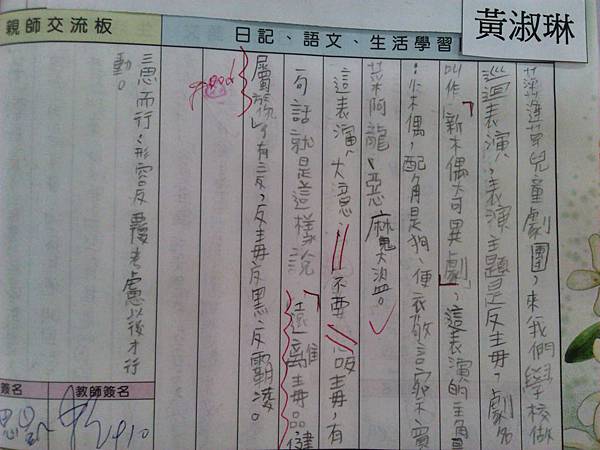 黃淑琳
日記、語文、生活學習
親師交流板
萍蓬草兒童劇團,來我們學校做
巡迴表演,表演主題是反毒,劇名
叫作「新木偶奇異劇」,這表演的主角是
:小木偶,配角是狗、便衣警察、賣
菜阿龍、惡魔大盜。
這表演大意:不要吸毒,有
一句話就是這樣說「遠離毒品健
屬於你」,有三反,反毒反黑、反霸凌。
三思而行:形容反覆考慮以後才行
動。
教師簽名
簽名